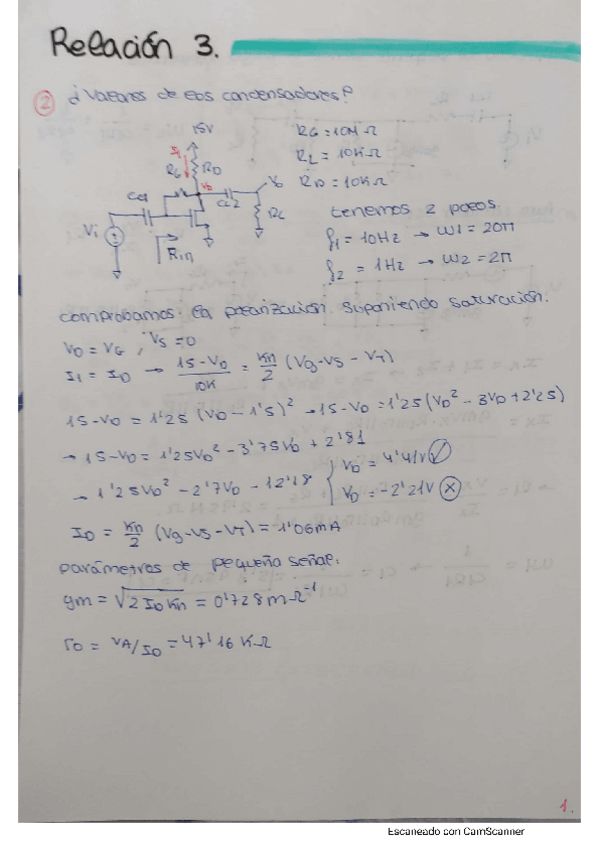 Relación 3.
② ¿Valores de los condensadores?
15V
RG = 10MΩ
RL = 10KΩ
RD = 10KΩ
I1
RG
RD
VD
Vo
CC1
CC2
RL
Vi
Rin
tenemos 2 polos
f1 = 10Hz → ω1 = 20π
f2 = 1Hz → ω2 = 2π
Comprobamos la polarización suponiendo saturación.
VD = VG , VS = 0
I1 = ID → 15-VD/10K = Kn/2 (Vg-VS-VT)
15-VD = 1'25 (VD-1'5)² → 15-VD = 1'25(VD²-3VD+2'25)
→ 15-VD = 1'25VD² - 3'75VD + 2'81
→ 1'25VD² - 2'7VD - 12'18
VD = 4'41V ✓
VD = -2'21V ⓧ
ID = Kn/2 (Vg-VS-VT) = 1'06mA
parámetros de pequeña señal:
gm = √2IDKn = 0'728mΩ⁻¹
ro = VA/ID = 47'16KΩ
1.
Escaneado con CamScanner